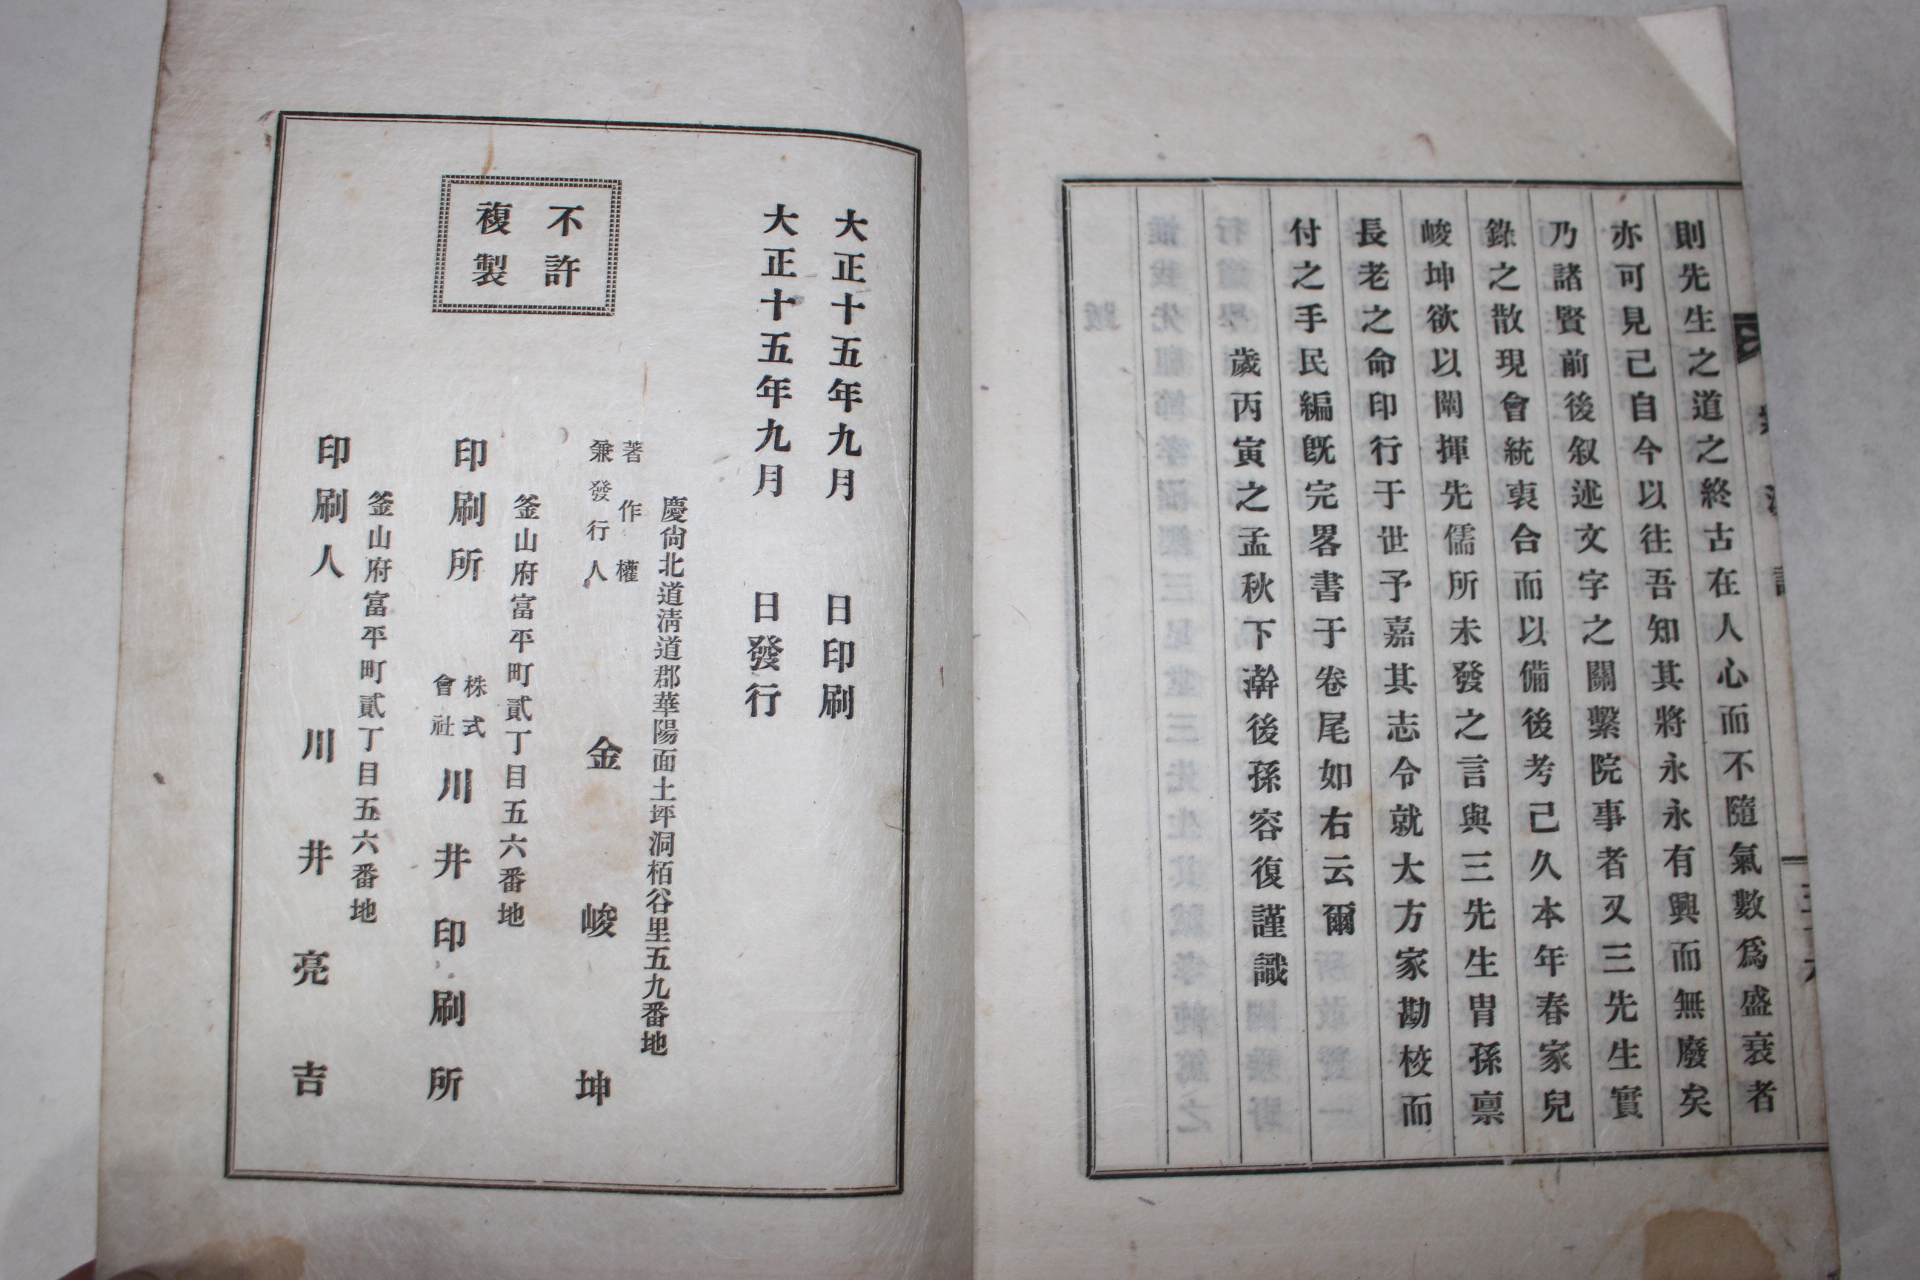 則先生之道之終古在人心而不隨氣數爲盛衰者
亦可見已自今以往吾知其將永永有興而無廢矣
乃諸賢前後叙述文字之關繫院事者又三先生實
錄之散現會統衷合而以備後考己久本年春家兒
峻坤欲以闡揮先儒所未發之言與三先生胄孫禀
長老之命印行于世予嘉其志令就大方家勘校而
付之手民編旣完畧書于卷尾如右云爾
歲丙寅之孟秋下澣後孫容復謹識
大正十五年九月 日印刷
大正十五年九月 日發行
不許
複製
慶尙北道淸道郡華陽面土坪洞栢谷里五九番地
著作權
兼發行人
金峻坤
釜山府富平町貳丁目五六番地
印刷所
株式
會社
川井印刷所
釜山府富平町貳丁目五六番地
印刷人 川井亮吉